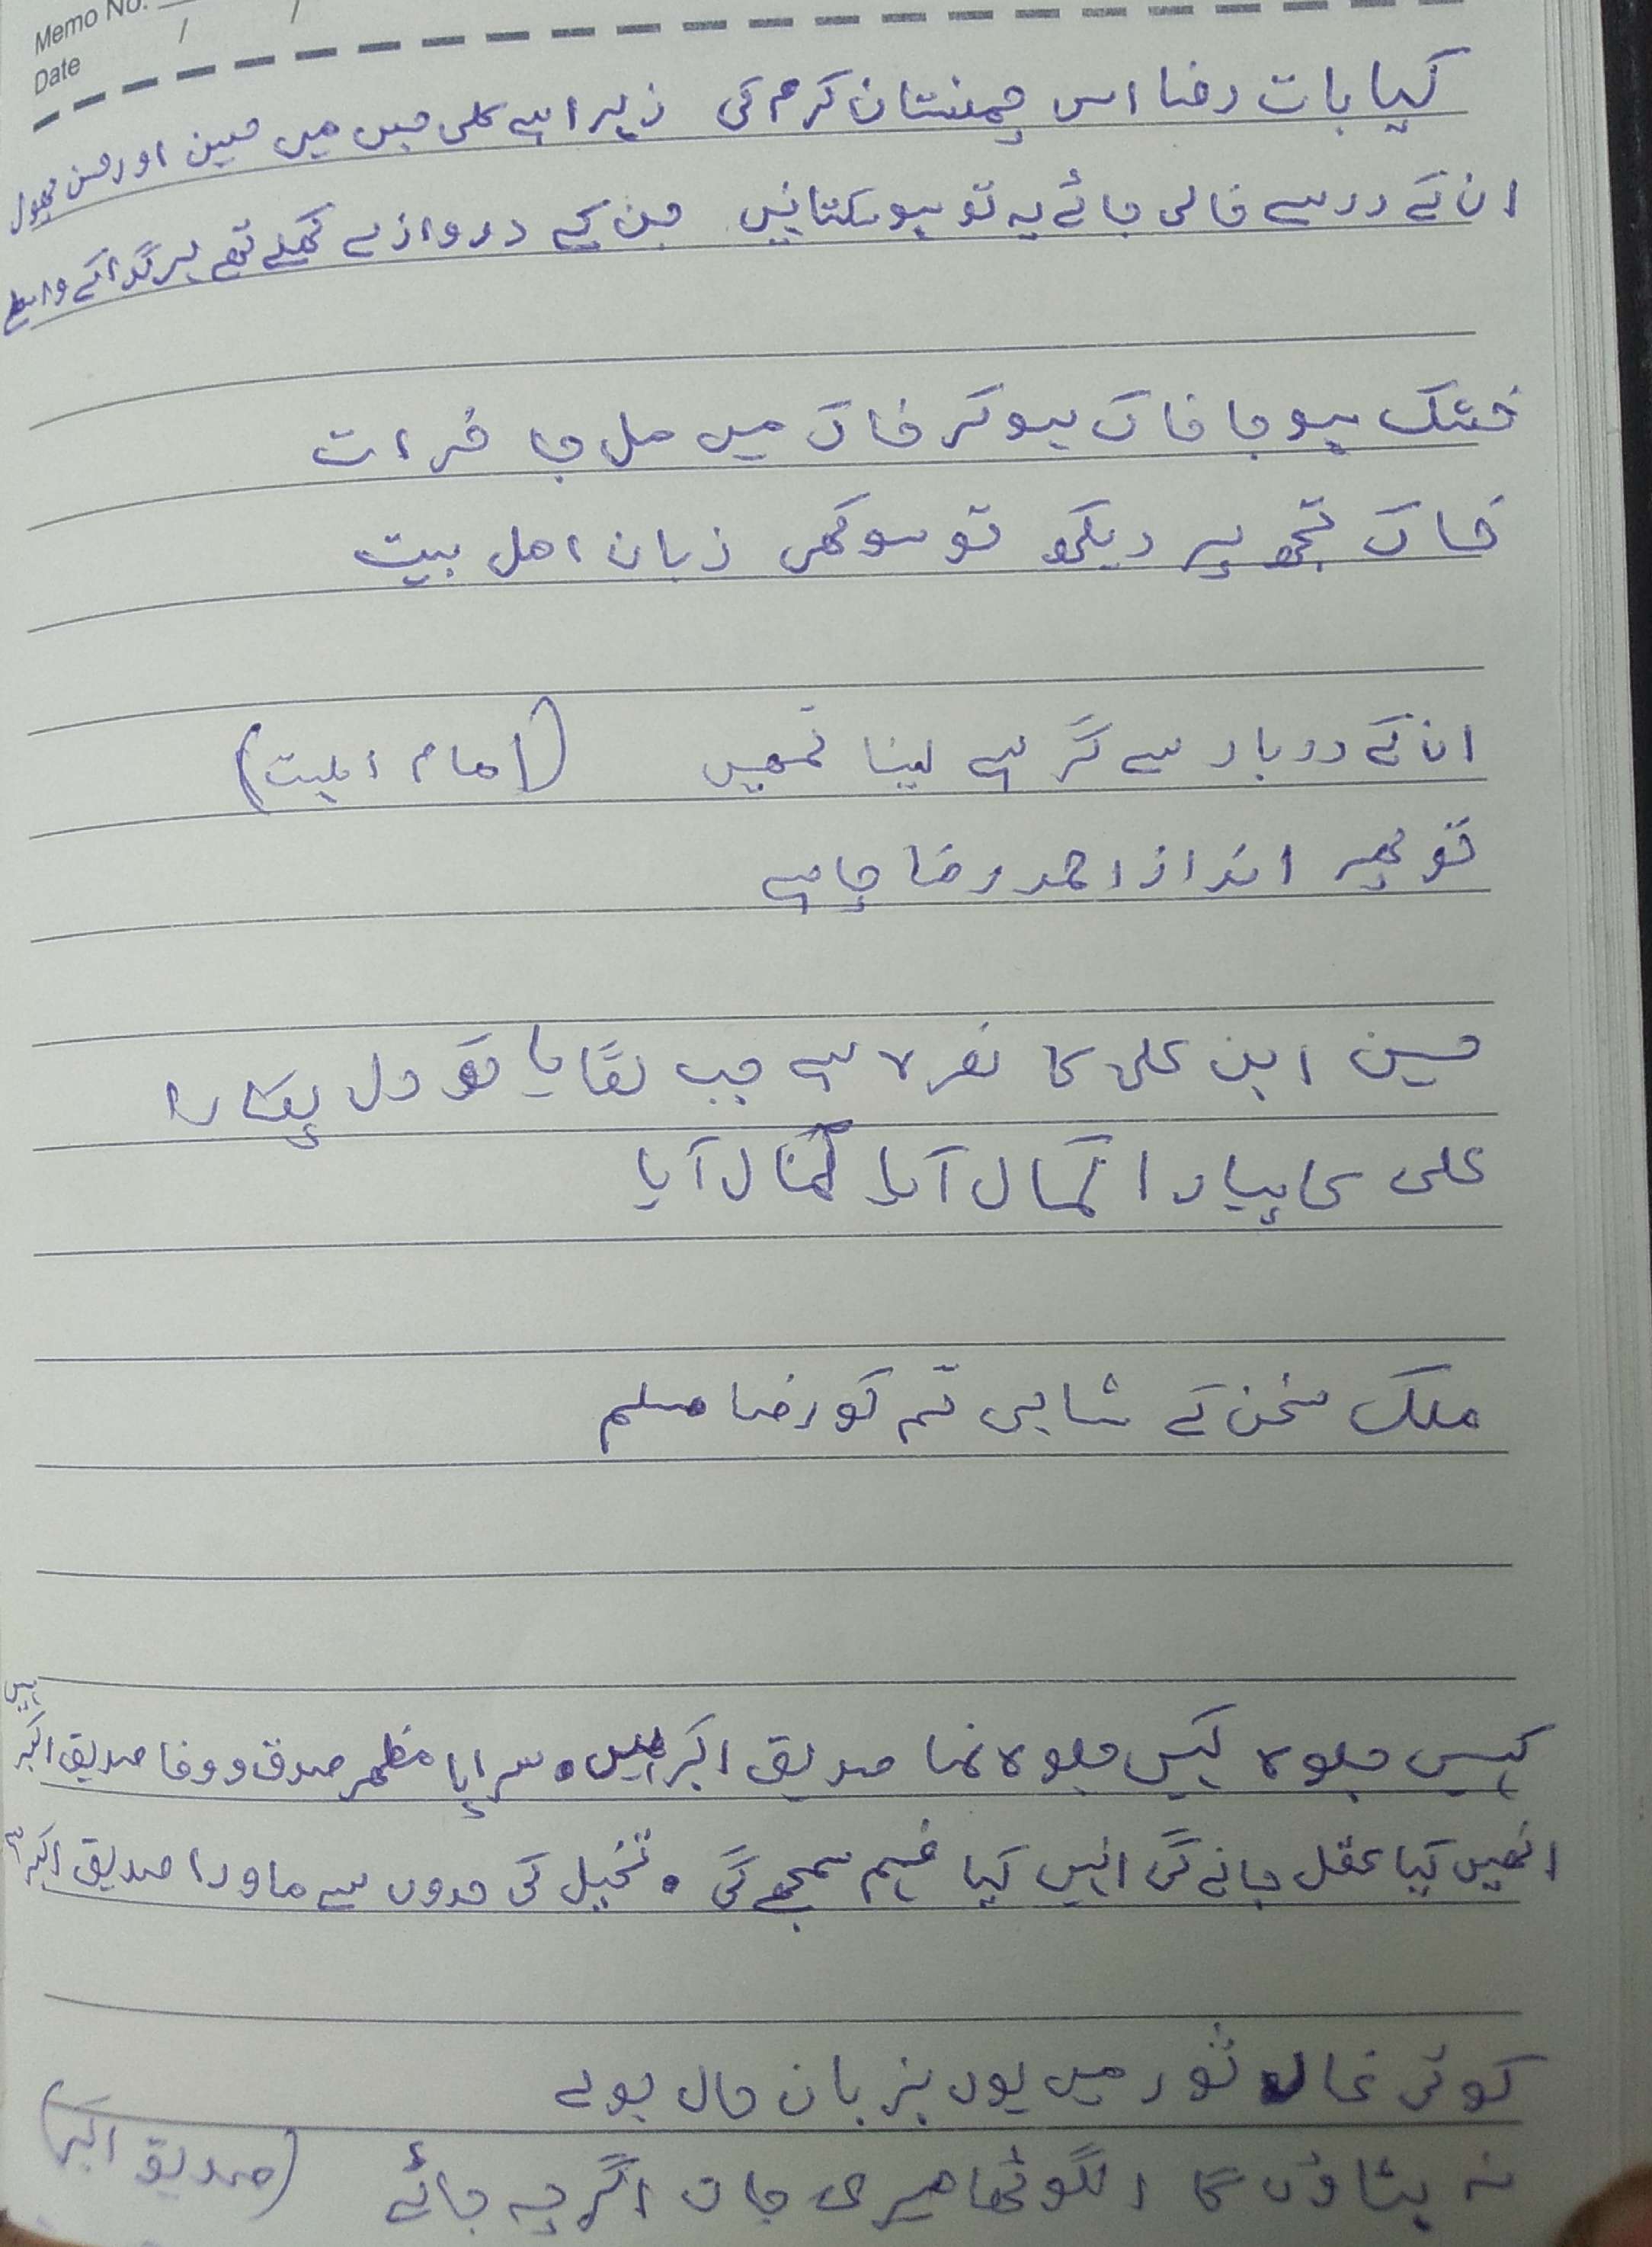 Memo No.
Date / /
کیا بات رضا اس چمنستان کرم کی زہرا ہے کلی جس میں حسین اور حسن پھول
ان کے در سے خالی جائے یہ تو ہو سکتا نہیں جن کے دروازے کھلے تھے ہر گدا کے واسطے
خشک ہو جا خاک ہو کر خاک میں مل جا فرات
خاک تجھ پر دیکھ تو سوکھی زبان اھل بیت
ان کے دربار سے گر ہے لینا تمھیں (امام اہلبیت)
تو پھر انداز احمد رضا چاہیے
حسین ابن علی کا نعرہ ہے جب لگایا تو دل پکارا
علی کا پیارا کمال آیا کمال آیا
ملک سخن کے شاہی تم کو رضا مسلم
کہیں جلوہ کہیں جلوہ نما صدیق اکبر ہیں ۰ سراپا مظہر صدق و وفا صدیق اکبر ہیں
انھیں کیا عقل جانے گی انہیں کیا فہم سمجھے گی ۰ تخیل کی حدوں سے ماورا صدیق اکبر
کوئی غار ثور میں یوں بزبان حال بولے
نہ ہٹاؤں گا انگوٹھا میری جان اگرچہ جائے (صدیق اکبر)